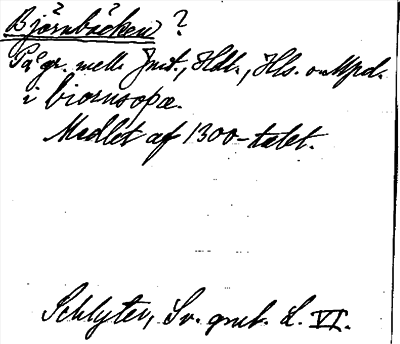 Bjørnbäcken ?
På gr. mell. Jmt., Hdl., Hls. o. Mpd.
i biornsopæ.
Medlet af 1300-talet.
Schlyter, Sv. gml. L. VI.